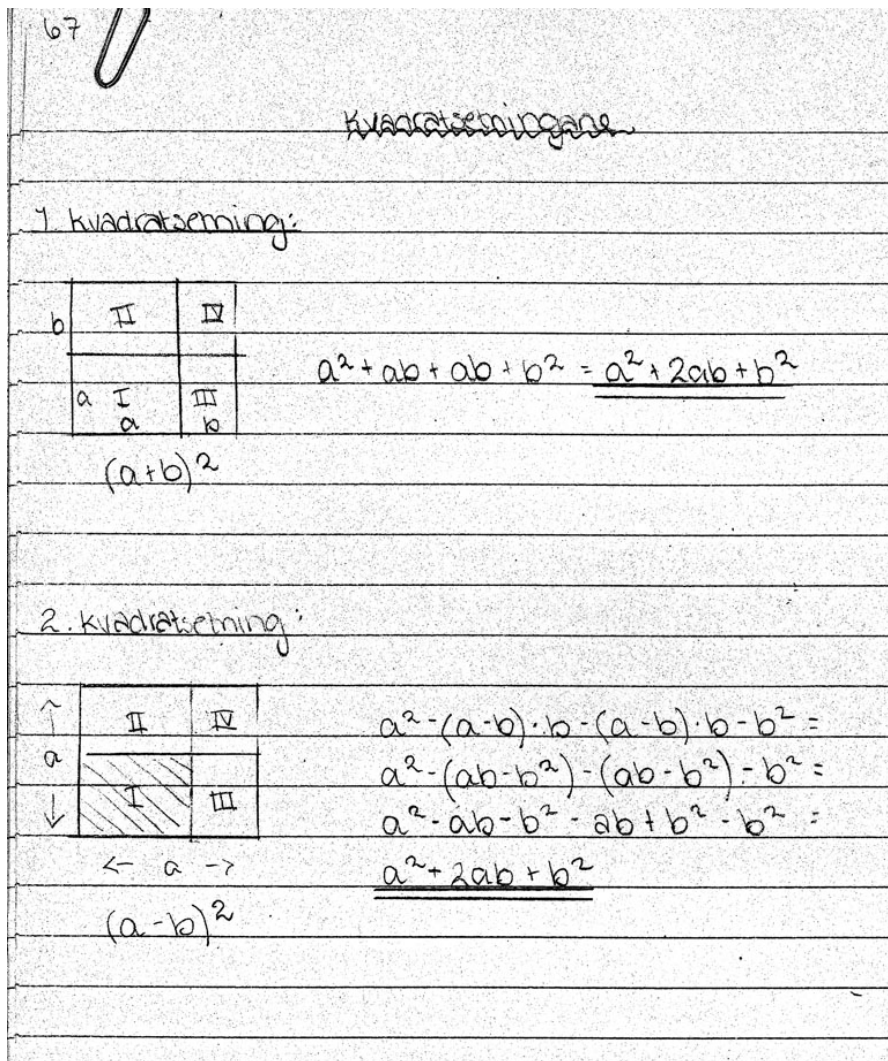 67
Kvadratsetningane
1. kvadratsetning:
II IV
b
a² + ab + ab + b² = a² + 2ab + b²
a I III
a b
(a+b)²
2. kvadratsetning:
↑ II IV a² - (a-b)·b - (a-b)·b - b² =
a a² - (ab-b²) - (ab-b²) - b² =
↓ I III a² - ab - b² - ab + b² - b² =
← a → a² + 2ab + b²
(a-b)²